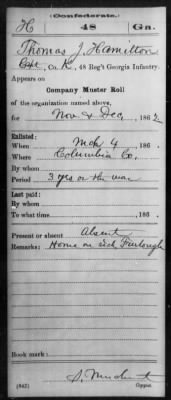 (Confederate.)
H 48 Ga.
Thomas J. Hamilton
Co. K, 48 Reg't Georgia Infantry.
Appears on
Company Muster Roll
of the organization named above,
for Nov & Dec, 1862
Enlisted:
When Mch 4, 186 .
Where Columbia Co.
By whom
Period 3 yrs or the war
Last paid:
By whom
To what time , 186 .
Present or absent Absent
Remarks: Home on sick Furlough
Book mark:
(642) Copyist.